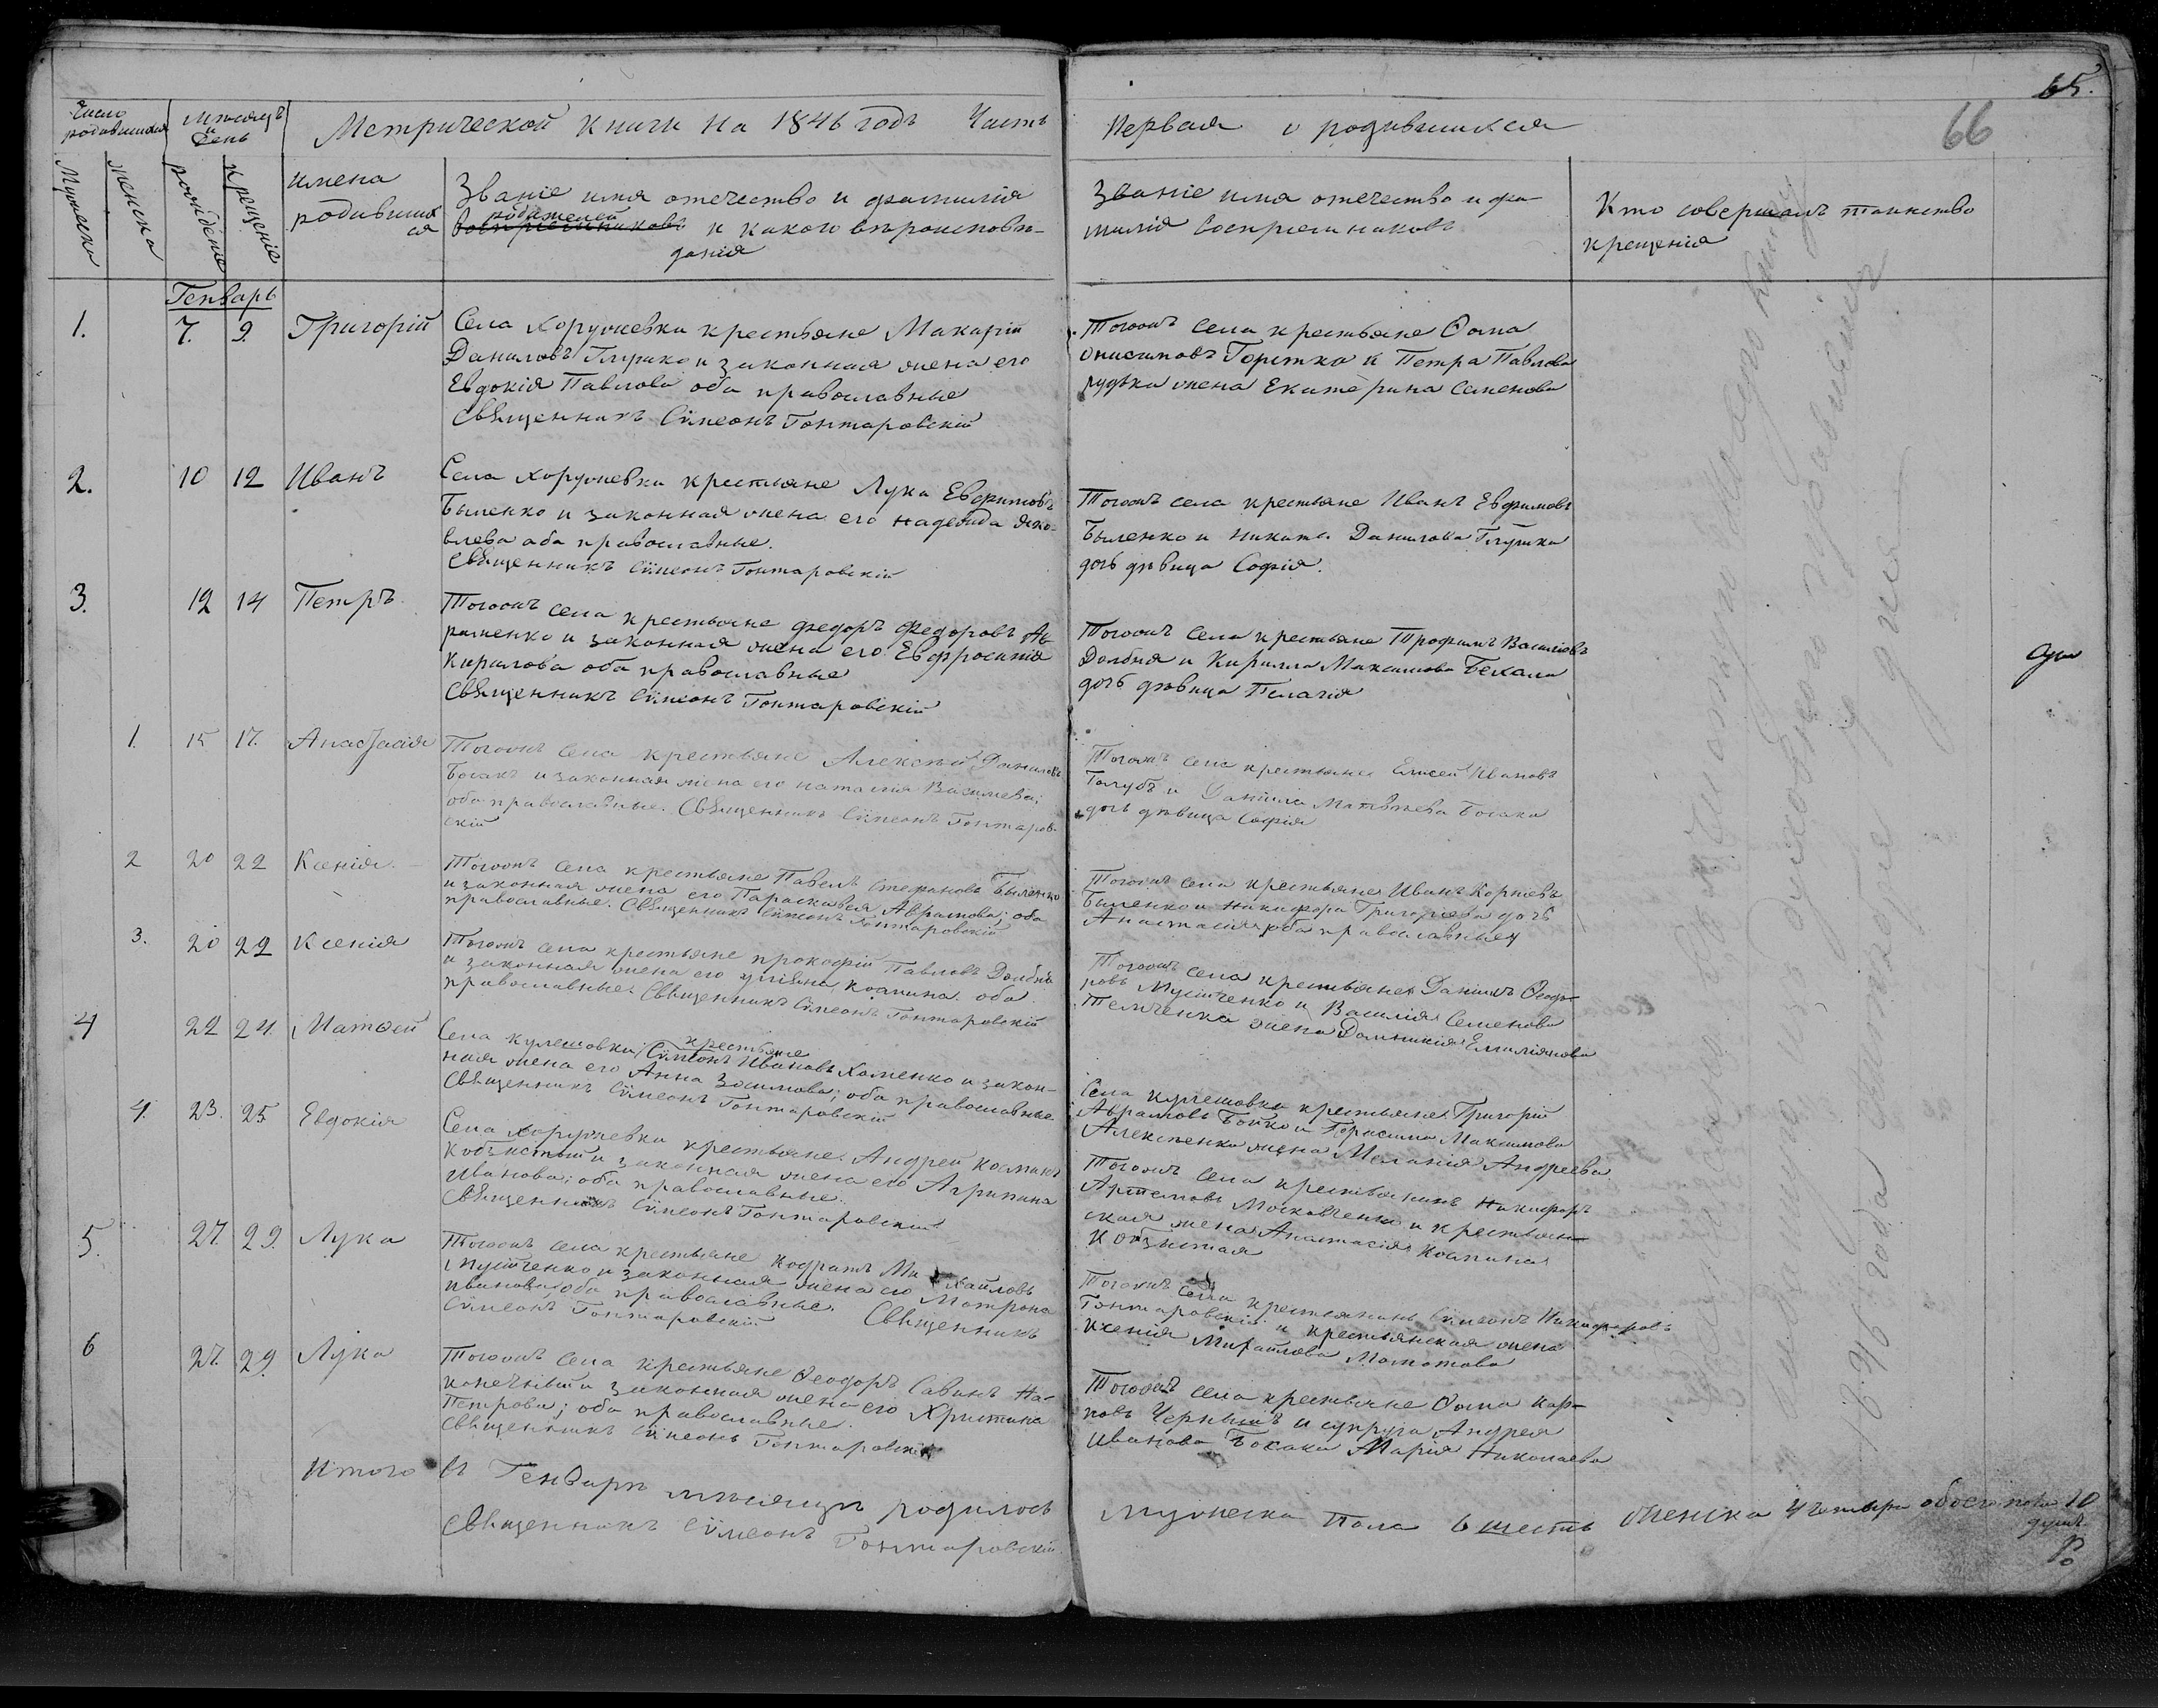 65.
66
Число родившихся
Мѣсяцъ и день
Метрической книги на 1846 годъ Часть
Первая о родившихся
Мужеска
женска
рожденія
крещенія
имена родившихся
Званіе имя отечество и фамилія
родителей
и какого вѣроисповѣ-
данія
Званіе имя отечество и фа-
милія воспріемниковъ
Кто совершалъ таинство
крещенія
Генварь
1. 7. 9. Григорій
Села Хоружевки крестьяне Макарій
Даниловъ Глушко и законная жена его
Евдокія Павлова оба православные
Священникъ Сѵмеонъ Гонтаровскій
Тогожъ села крестьяне Ѳома
Онисимовъ Горстка и Петра Павлова
рудька жена Екатерина Семенова
2. 10 12 Иванъ
Села Хоружевки крестьяне Лука Евфимовъ
Быленко и законная жена его надежда Яко-
влева оба православные.
Священникъ Сѵмеонъ Гонтаровскій
Тогожъ села крестьяне Иванъ Евфимовъ
Быленко и Никиты Данилова Глушка
дочь дѣвица Софія.
3. 12 14 Петръ
Тогожъ села крестьяне Федоръ Федоровъ Ав
раменко и законная жена его Евфросинія
Кирилова оба православные
Священникъ Сѵмеонъ Гонтаровскій
Тогожъ села крестьяне Трофимъ Василіовъ
Долбня и Кирилла Максимова Бекала
дочь дѣвица Пелагія
1. 15 17. Анастасія
Тогожъ села крестьяне Алексѣй Даниловъ
Босакъ и законная жена его наталія Василіева;
оба православные. Священникъ Сѵмеонъ Гонтаров-
скій
Тогожъ села крестьяне Елисей Ивановъ
Голубъ и Даніила Матвѣева Босака
дочь дѣвица Софія
2 20 22 Ксенія
Тогожъ села крестьяне Павелъ Стефановъ Быленко
и законная жена его Параскевія Аврамова; оба
православные. Священникъ Сѵмеонъ Гонтаровскій
Тогожъ села крестьяне Иванъ Корніевъ
Быленко и Никифора Григоріева дочь
Анастасія оба православныя
3. 20 22 Ксенія
Тогожъ села крестьяне прокофій Павловъ Долбня
и законная жена его уліяна Козмина. оба
православные. Священникъ Сѵмеонъ Гонтаровскій
Тогожъ села крестьяне Даніилъ Ѳеодо-
ровъ Мусіченко и Василія Семенова
Теличенка жена Домникія Емиліянова
4 22 24. Матѳей
Села кулешовки; крестьяне
Сѵмеонъ Ивановъ Хоменко и закон-
ная жена его Анна Зосимова; оба православные
Священникъ Сѵмеонъ Гонтаровскій
Села кулешовки крестьяне Григорій
Аврамовъ Бойко и Герасима Максимова
Алексѣенка жена Меланія Андреева
4. 23. 25 Евдокія
Села Хоружевки крестьяне. Андрей Козминъ
Кобзистый и законная жена его Агрипина
Иванова; оба православные.
Священникъ Сѵмеонъ Гонтаровскій
Тогожъ села крестьянинъ Никифоръ
Артемовъ Московченко и крестьян-
ская жена Анастасія Козмина
Кобзистая
5. 27. 29. Лука
Тогожъ села крестьяне Кодратъ Михайловъ
Мусіченко и законная жена его Матрона
Иванова; оба православные. Священникъ
Сѵмеонъ Гонтаровскій
Тогожъ села крестьянинъ Сѵмеонъ Никифоровъ
Гонтаровскій и крестьянская жена
Ксенія Михайлова
6 27. 29. Лука
Тогожъ села крестьяне Ѳеодоръ Савинъ На-
конечній и законная жена его Христина
Петрова; оба православные.
Священникъ Сѵмеонъ Гонтаровскій
Тогожъ села крестьяне Ѳома Кар-
повъ Чернышъ и супруга Андрея
Иванова Босака Марія Николаева
Итого въ Генварѣ мѣсяцѣ родилось
мужеска пола 6 шесть женска 4 четыри обоего пола 10
душъ.
Священникъ Сѵмеонъ Гонтаровскій